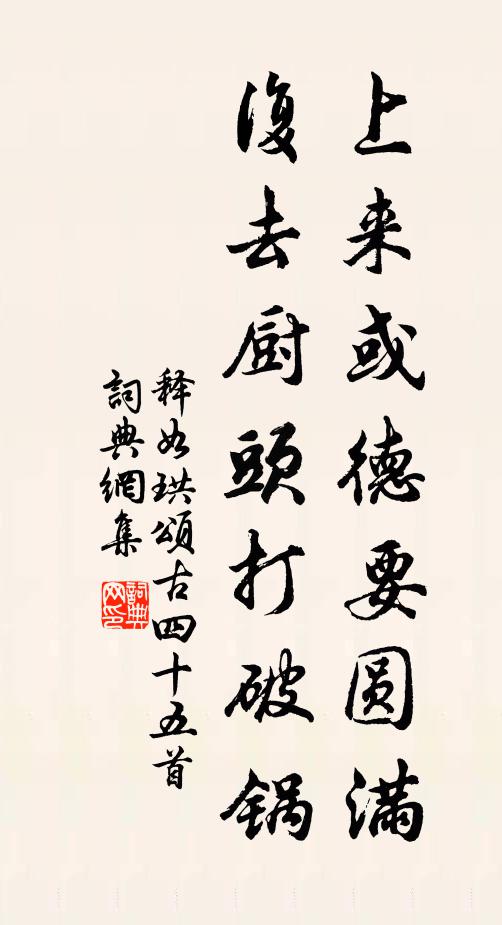 上来或德要圆满
復去厨頭打破锅
释如珙頌古四十五首
詞典網集
詞典网印